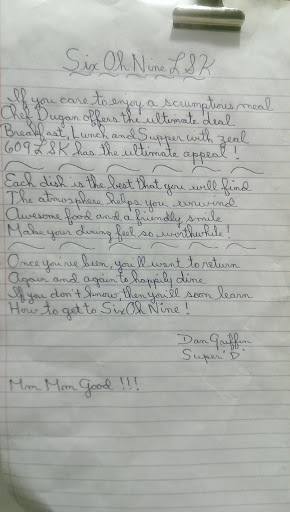 Six Oh Nine LSK
If you care to enjoy a scrumptious meal
Chef Dugan offers the ultimate deal
Breakfast, Lunch and Supper with zeal
609 LSK has the ultimate appeal!
Each dish is the best that you will find
The atmosphere helps you unwind
Awesome food and a friendly smile
Make your dining feel so worthwhile!
Once you've been, you'll want to return
Again and again to happily dine
If you don't know, then you'll soon learn
How to get to Six Oh Nine!
Dan Griffin
Super "D"
Mm Mm Good!!!